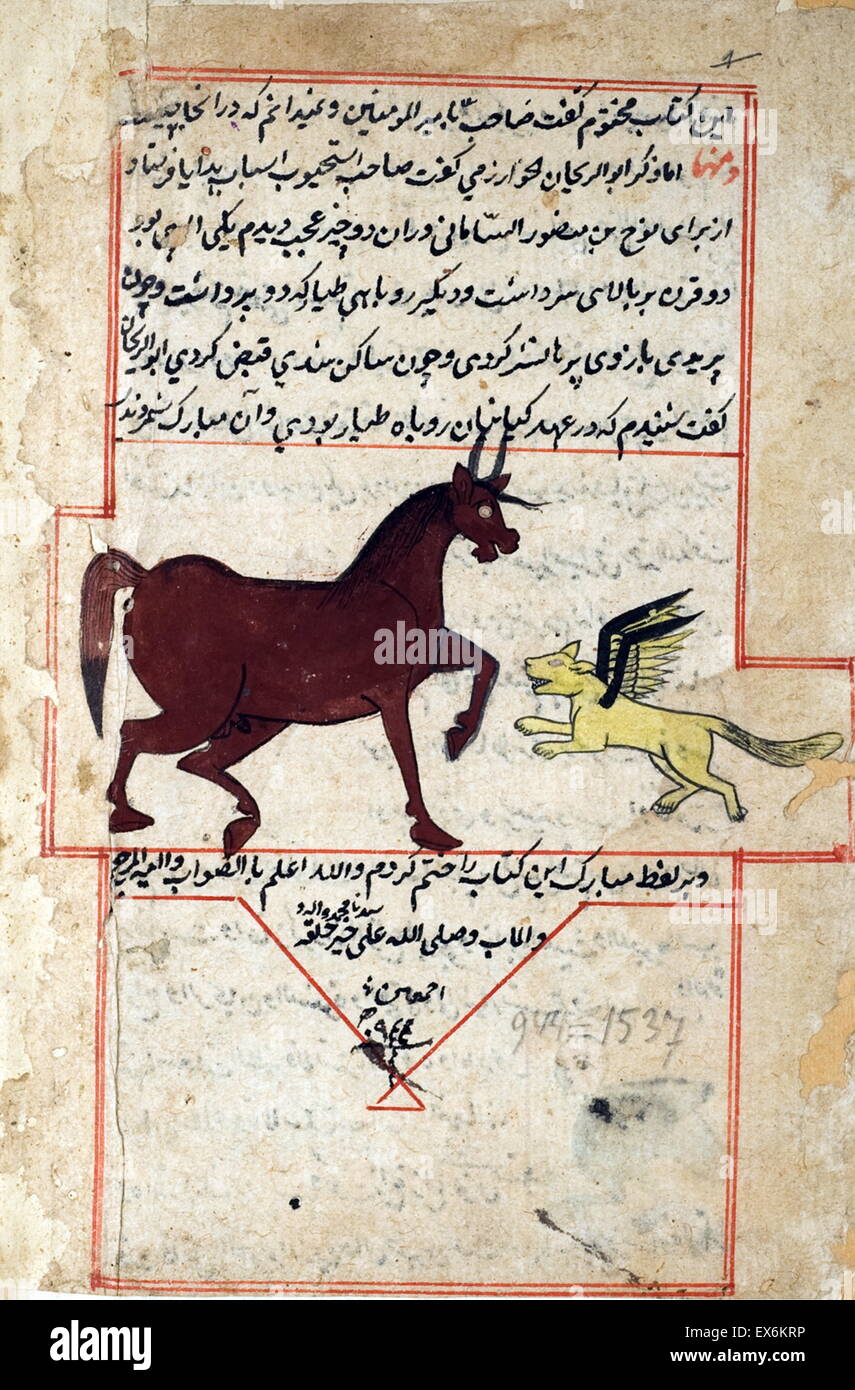 این کتاب مختوم گفت صاحب تا بامیر المومنین و نمیدانم که در انجا چیست
ومنها اما ذکر ابو الریحان الخوارزمی گفت صاحب اسباب هدایا فرستاد
از برای نوح بن منصور السامانی و در ان دو چیز عجب دیدم یکی اسپی بود
دو قرن بر بالای سر داشت و دیگر روباهی طیار که دو پر داشت و چون
پریدی بازوی پرها نشر کردی و چون ساکن شدی قبض کردی ابو الریحان
گفت شنیدم که در عهد کیانیان روباه طیار بودی و آن مبارک شمردندی
وبر لفظ مبارک این کتاب را ختم کردم والله اعلم بالصواب والیه المرجع
سیدنا محمد واله و
والماب وصلی الله علی خیر خلقه
اجمعین
٩٤٤
944 = 1537
alamy
alamy
Image ID: EX6KRP
www.alamy.com